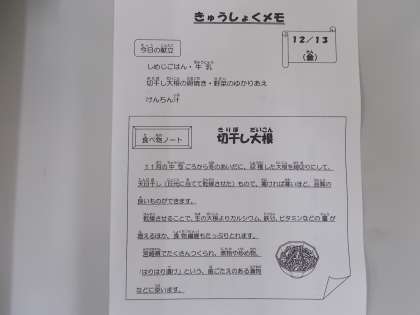 きゅうしょくメモ
12/13
(金)
今日の献立
しめじごはん・牛乳
切干し大根の卵焼き・野菜のゆかりあえ
けんちん汁
食べ物ノート
切干し大根
11月の中旬ごろから冬のあいだに、収穫した大根を細切りにして、
天日干し(日光に当てて乾燥させた)もので、寒ければ寒いほど、品質の
良いものができます。
乾燥させることで、生の大根よりカルシウム、鉄分、ビタミンなどの量が
増えるほか、食物繊維もたっぷりとれます。
宮崎県でたくさんつくられ、煮物や炒め物、
「はりはり漬け」という、歯ごたえのある漬物
などに使います。